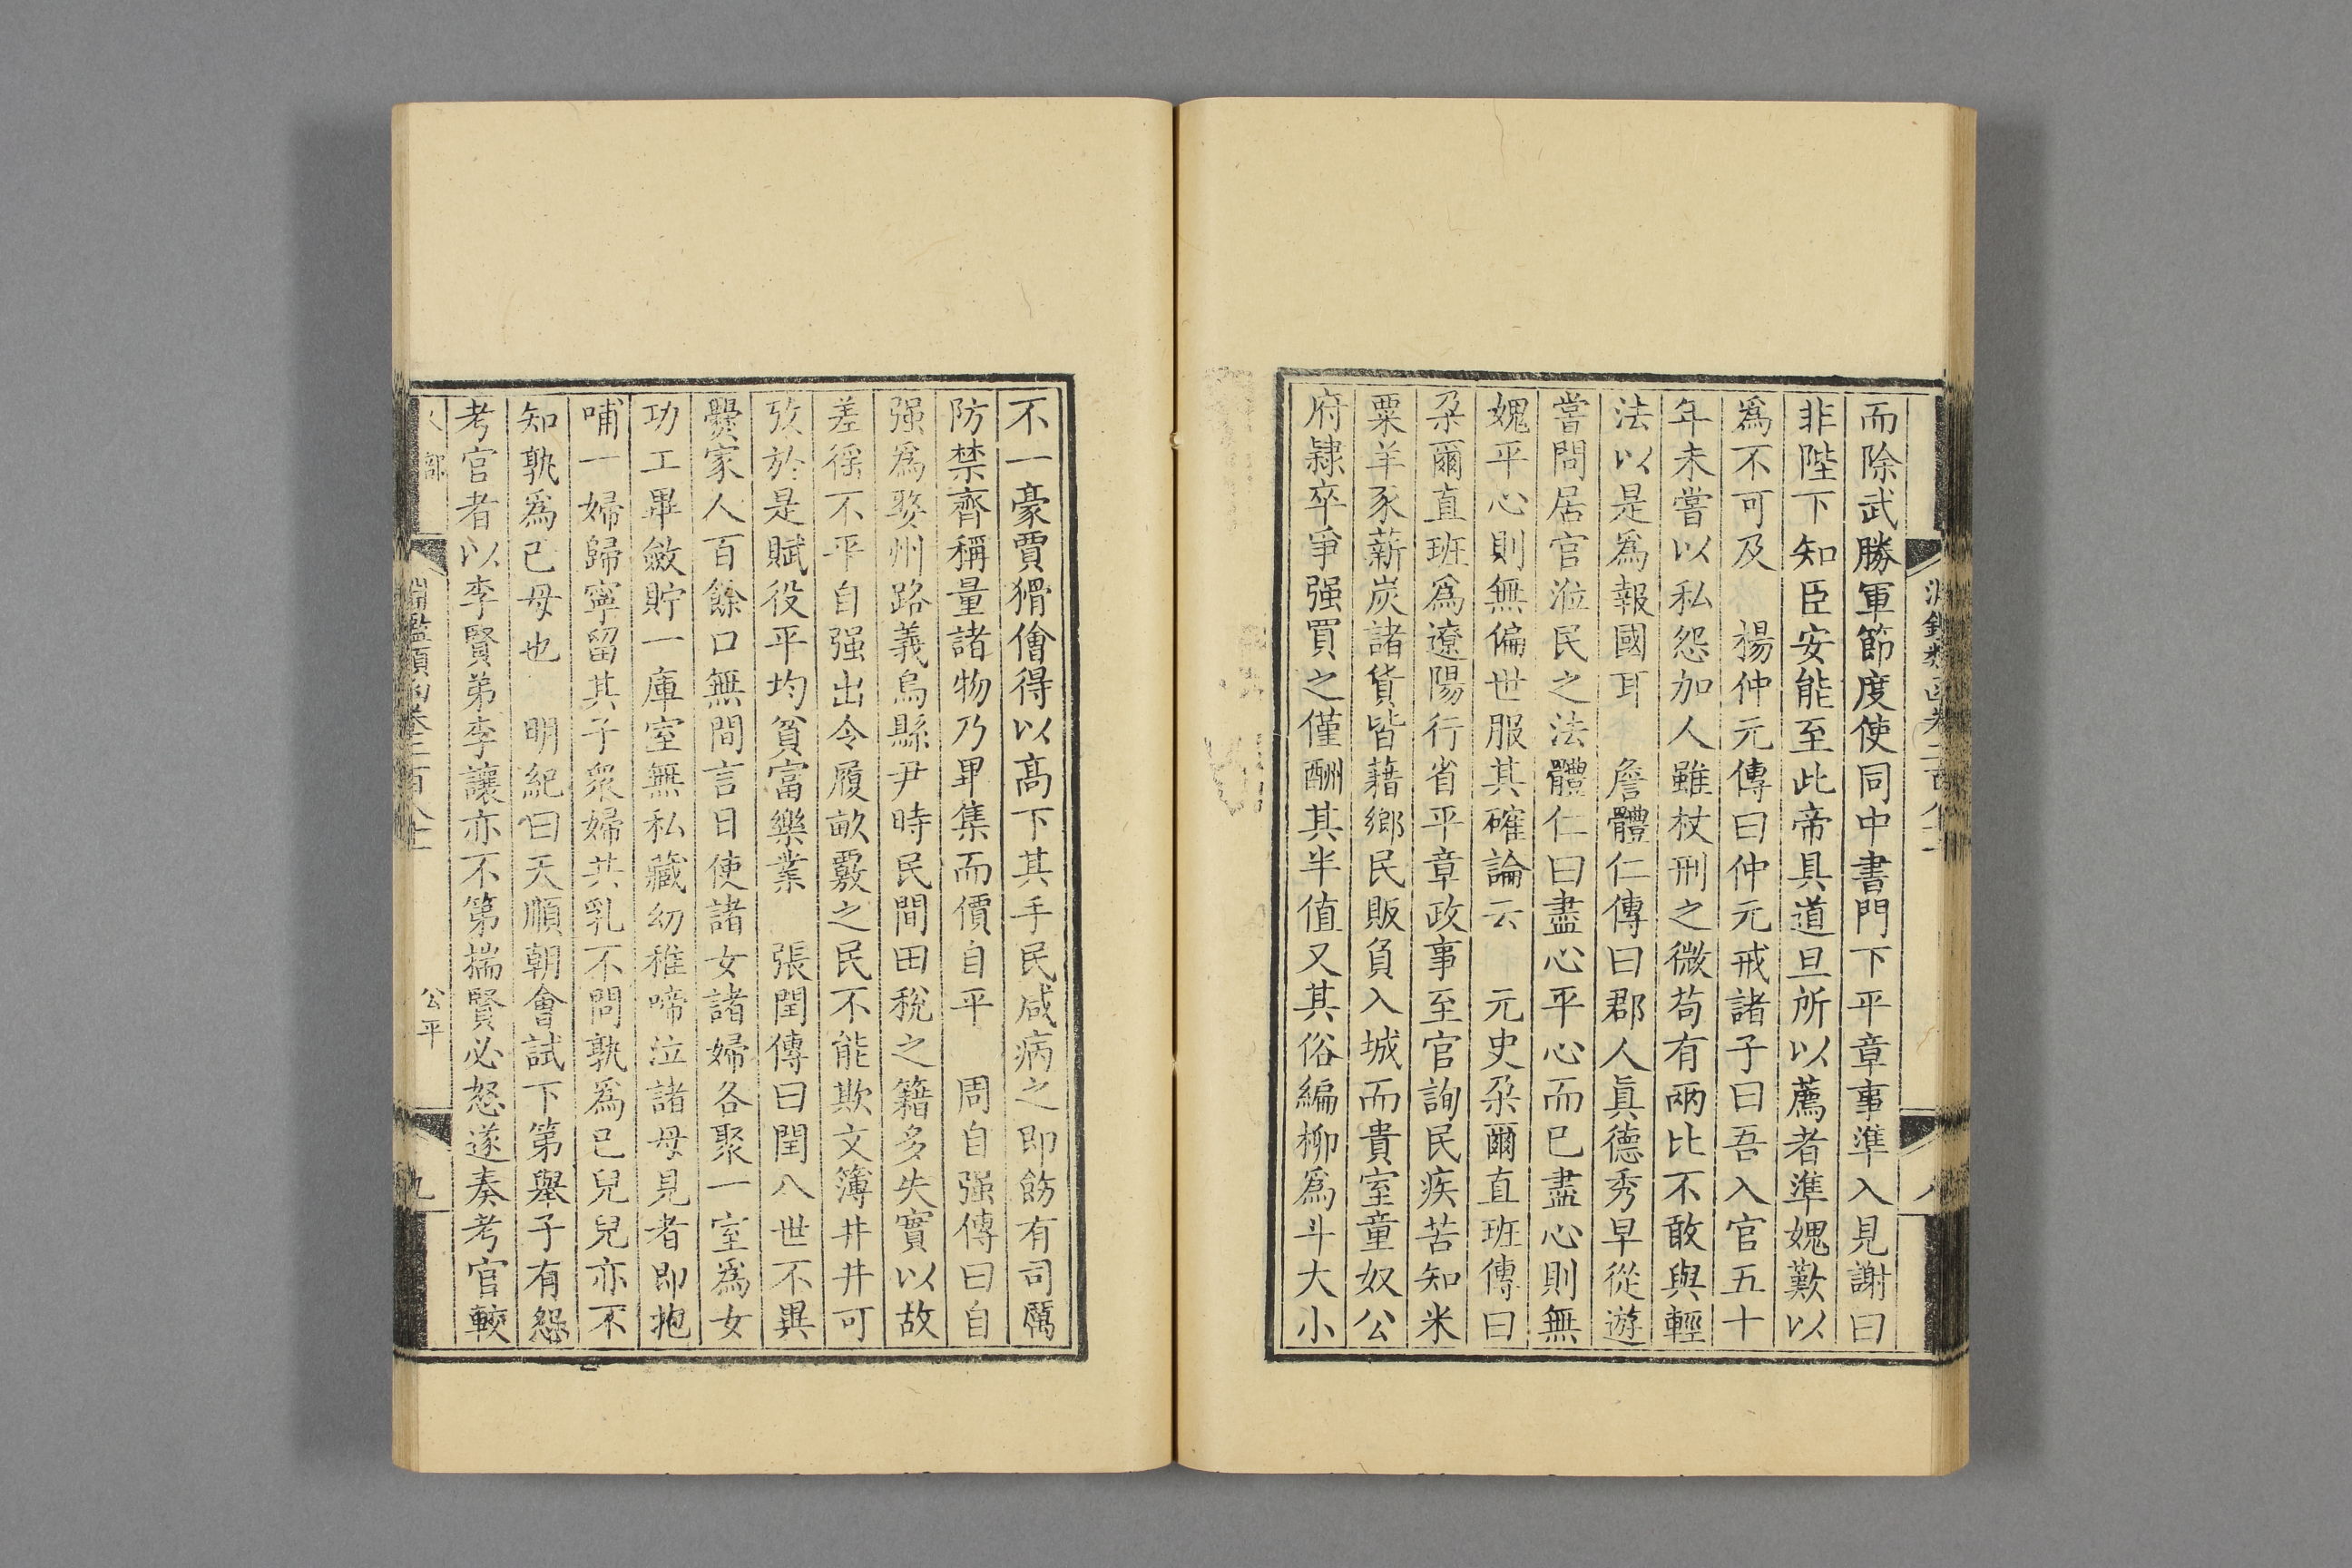 而除武勝軍節度使同中書門下平章事準入見謝曰
非陛下知臣安能至此帝具道旦所以薦者準媿歎以
爲不可及　楊仲元傳曰仲元戒諸子曰吾入官五十
年未嘗以私怨加人雖杖刑之微苟有兩比不敢與輕
法以是爲報國耳　詹體仁傳曰郡人眞德秀早從遊
嘗問居官涖民之法體仁曰盡心平心而已盡心則無
媿平心則無偏世服其確論云　元史朶爾直班傳曰
朶爾直班爲遼陽行省平章政事至官詢民疾苦知米
粟羊豕薪炭諸貨皆藉鄉民販負入城而貴室童奴公
府隸卒爭强買之僅酬其半值又其俗編柳爲斗大小
不一豪賈猾儈得以高下其手民咸病之即飭有司厲
防禁齊稱量諸物乃畢集而價自平　周自强傳曰自
强爲婺州路義烏縣尹時民間田稅之籍多失實以故
差徭不平自强出令履畝覈之民不能欺文簿井井可
攷於是賦役平均貧富樂業　張閏傳曰閏八世不異
爨家人百餘口無間言日使諸女諸婦各聚一室爲女
功工畢斂貯一庫室無私藏幼稚啼泣諸母見者即抱
哺一婦歸寧留其子衆婦共乳不問孰爲己兒兒亦不
知孰爲己母也　明紀曰天順朝會試下第舉子有怨
考官者以李賢弟李讓亦不第揣賢必怒遂奏考官較
公平
九